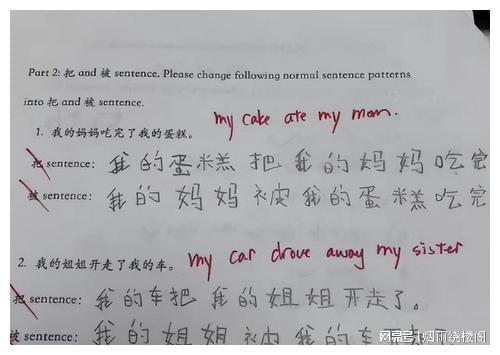 Part 2: 把 and 被 sentence. Please change following normal sentence patterns
into 把 and 被 sentence.
my cake ate my mom.
1. 我的妈妈吃完了我的蛋糕。
把 sentence: 我的蛋糕把我的妈妈吃完
被 sentence: 我的妈妈被我的蛋糕吃完
my car drove away my sister
2. 我的姐姐开走了我的车。
把 sentence: 我的车把我的姐姐开走了。
被 sentence: 我的姐姐被我的车
搜狐号@烟雨绕楼阁